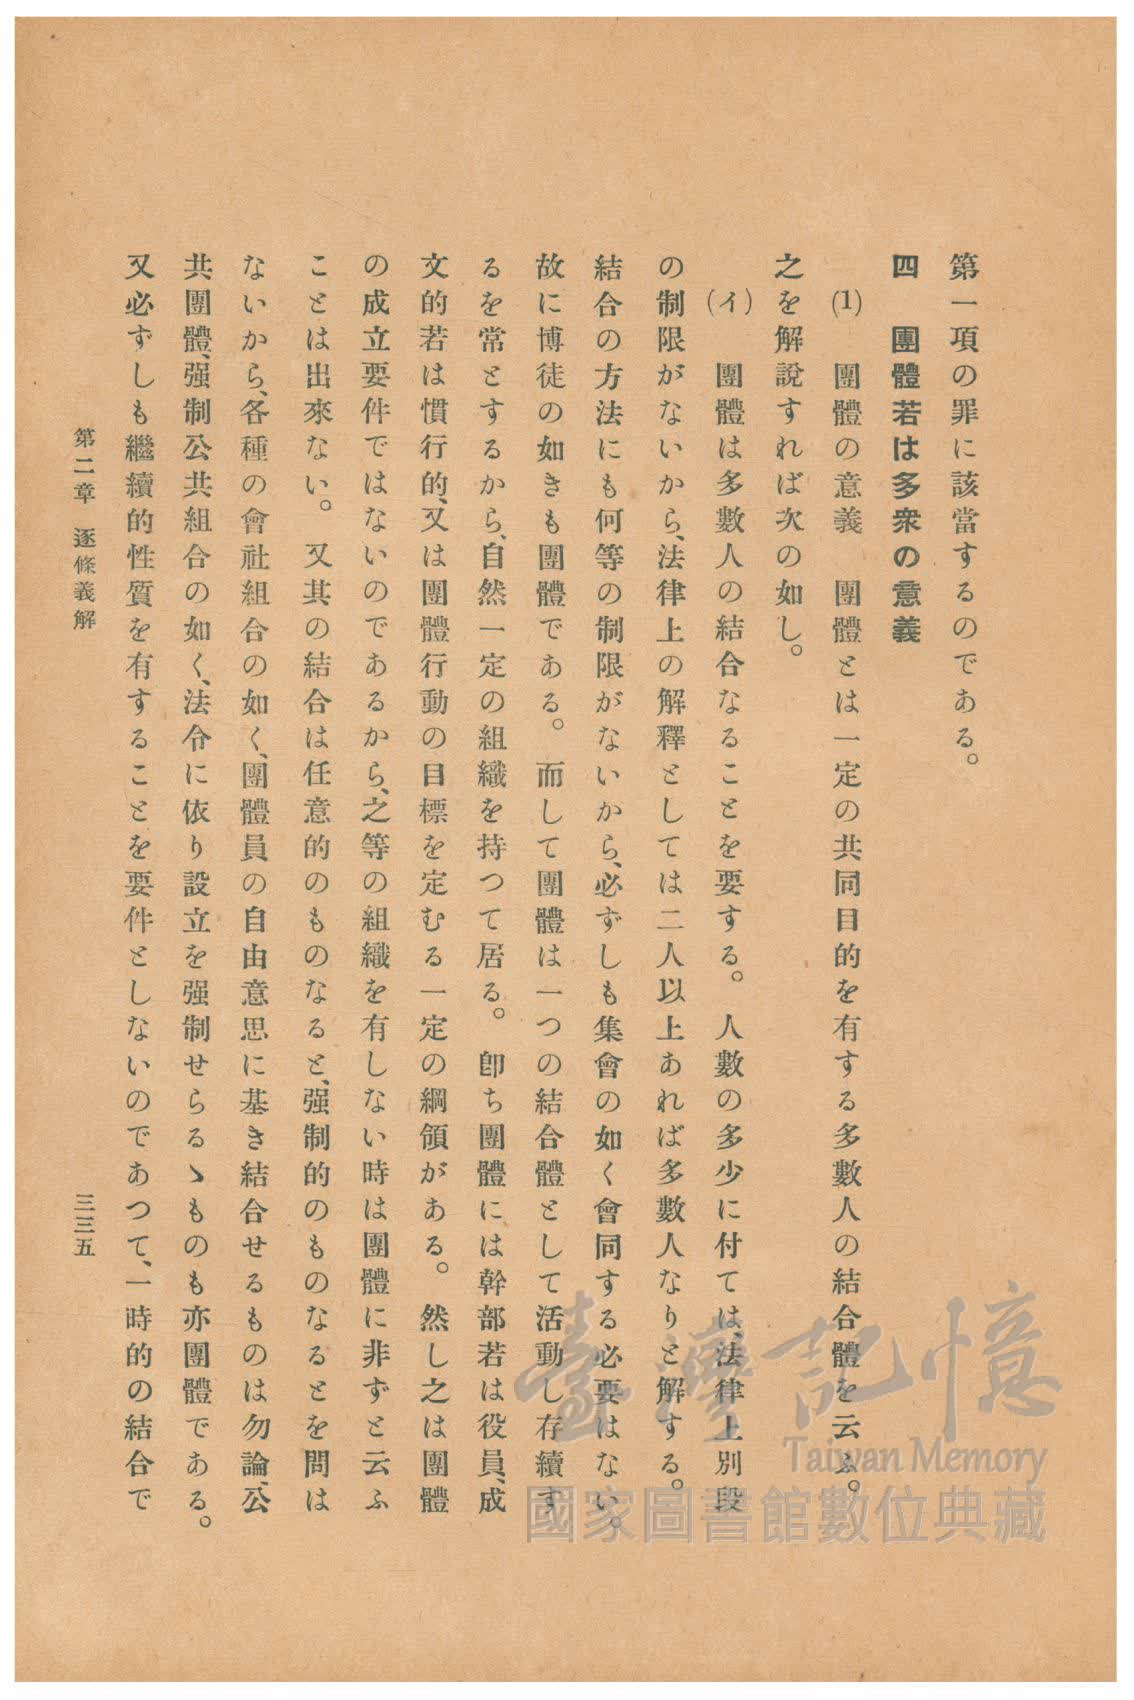 第一項の罪に該當するのである。
四　團體若は多衆の意義
(1)　團體の意義　團體とは一定の共同目的を有する多數人の結合體を云ふ。
之を解說すれば次の如し。
(イ)　團體は多數人の結合なることを要する。　人數の多少に付ては、法律上別段
の制限がないから、法律上の解釋としては二人以上あれば多數人なりと解する。
結合の方法にも何等の制限がないから、必ずしも集會の如く會同する必要はない。
故に博徒の如きも團體である。　而して團體は一つの結合體として活動し存續す
るを常とするから、自然一定の組織を持つて居る。　卽ち團體には幹部若は役員、成
文的若は慣行的、又は團體行動の目標を定むる一定の綱領がある。　然し之は團體
の成立要件ではないのであるから、之等の組織を有しない時は團體に非ずと云ふ
ことは出來ない。　又其の結合は任意的のものなると、强制的のものなるとを問は
ないから、各種の會社組合の如く、團體員の自由意思に基き結合せるものは勿論、公
共團體、强制公共組合の如く、法令に依り設立を强制せらるゝものも亦團體である。
又必ずしも繼續的性質を有することを要件としないのであつて、一時的の結合で
第二章　逐條義解
三三五
臺灣記憶
Taiwan Memory
國家圖書館數位典藏